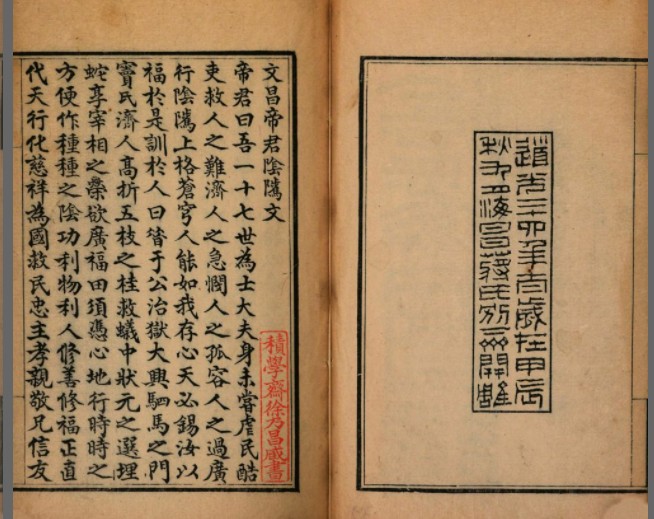 道光二十四年太歲在甲辰
秋九月海昌蔣氏別下齋開雕
文昌帝君陰騭文
積學齋徐乃昌藏書
帝君曰吾一十七世為士大夫身未嘗虐民酷
吏救人之難濟人之急憫人之孤容人之過廣
行陰騭上格蒼穹人能如我存心天必錫汝以
福於是訓於人曰昔于公治獄大興駟馬之門
竇氏濟人高折五枝之桂救蟻中狀元之選埋
蛇享宰相之榮欲廣福田須憑心地行時時之
方便作種種之陰功利物利人修善修福正直
代天行化慈祥為國救民忠主孝親敬兄信友